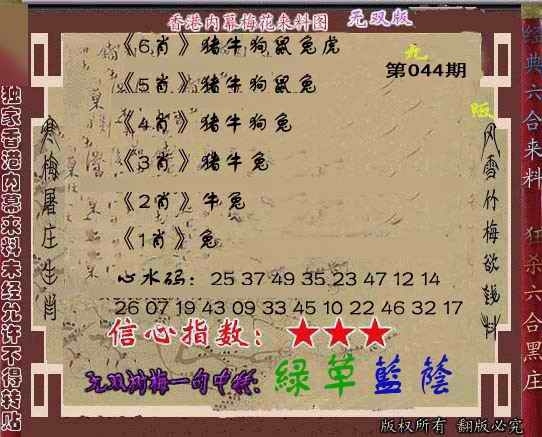 香港内幕梅花来料图 无双版
《6肖》猪牛狗鼠兔虎
第044期
《5肖》猪牛狗鼠兔
《4肖》猪牛狗兔
《3肖》猪牛兔
《2肖》牛兔
《1肖》兔
心水码：25 37 49 35 23 47 12 14
26 07 19 43 09 33 45 10 22 46 32 17
信心指数：★★★
无双浏梅一句中特：緑草藍蔭
版权所有 翻版必究
独家香港内幕来料未经允许不得转贴
寒梅屠庄生肖
风雪竹梅欲钱料
经典六合来料 狂杀六合黑庄